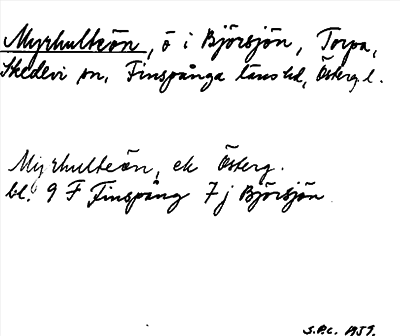 Myrhulteön, ö i Björsjön, Torpa,
Skedevi sn, Finspånga läns hd, Österg. l.
Myrhulteön, ek Österg.
bl. 9 F Finspång 7j Björsjön
S.P.C. 1957.